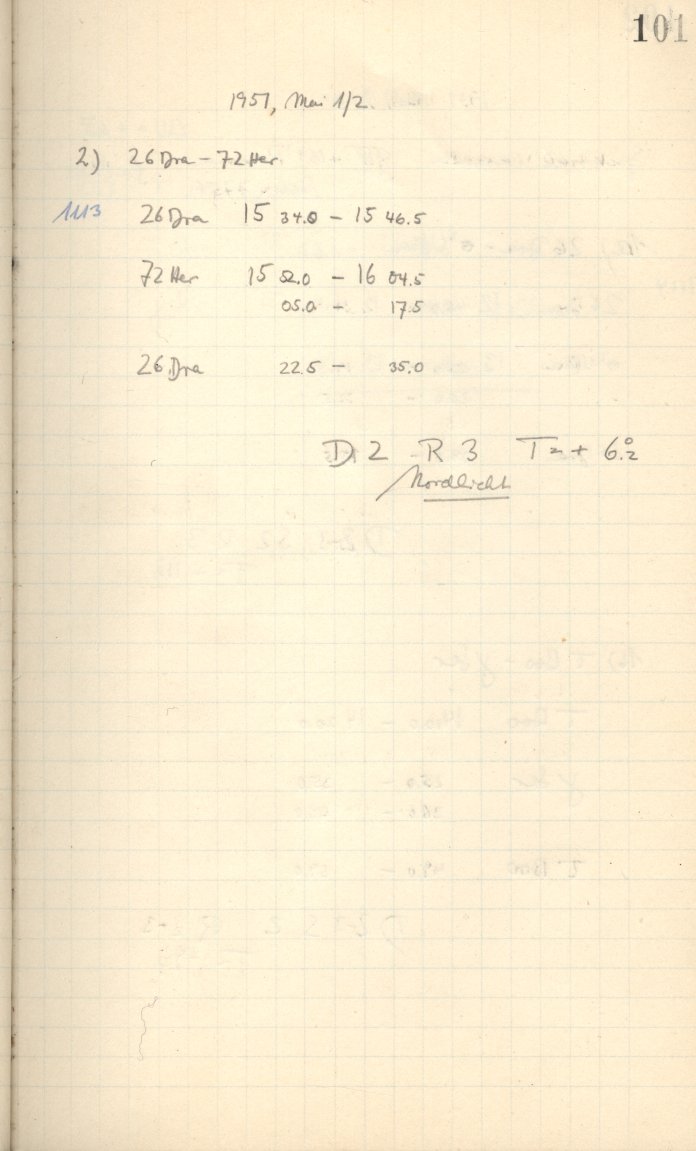 101
1951, Mai 1/2.
2) 26 Dra - 72 Her.
1113 26 Dra 15 34.0 - 15 46.5
72 Her 15 52.0 - 16 04.5
05.0 - 17.5
26 Dra 22.5 - 35.0
D 2 R 3 T = + 6.°2
Nordlicht